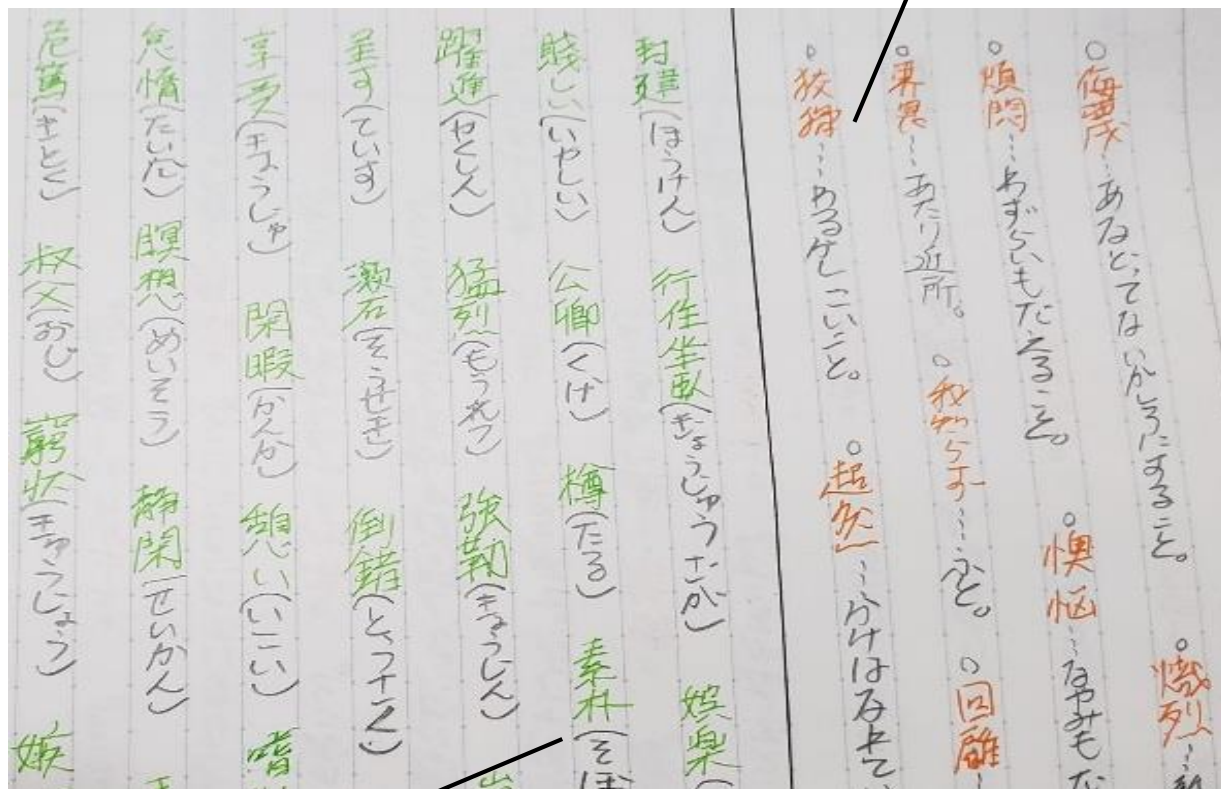 侮蔑…あなどってないがしろにすること。 熾烈…
煩悶…わずらいもだえること。 懊悩…なやみもだ
界隈…あたり近所。 我知らず…ふと。 回離…
狡猾…わるがしこいこと。 超然…かけはなれて
封建(ほうけん) 行住坐臥(ぎょうじゅうざが) 娯楽(
賤しい(いやしい) 公卿(くげ) 樽(たる) 素朴(そぼ
躍進(やくしん) 猛烈(もうれつ) 強靭(きょうじん)
呈す(ていす) 漱石(そうせき) 倒錯(とうさく)
享受(きょうじゅ) 閑暇(かんか) 憩い(いこい) 嗜
怠惰(たいだ) 瞑想(めいそう) 静閑(せいかん)
危篤(きとく) 叔父(おじ) 窮状(きゅうじょう) 嫉